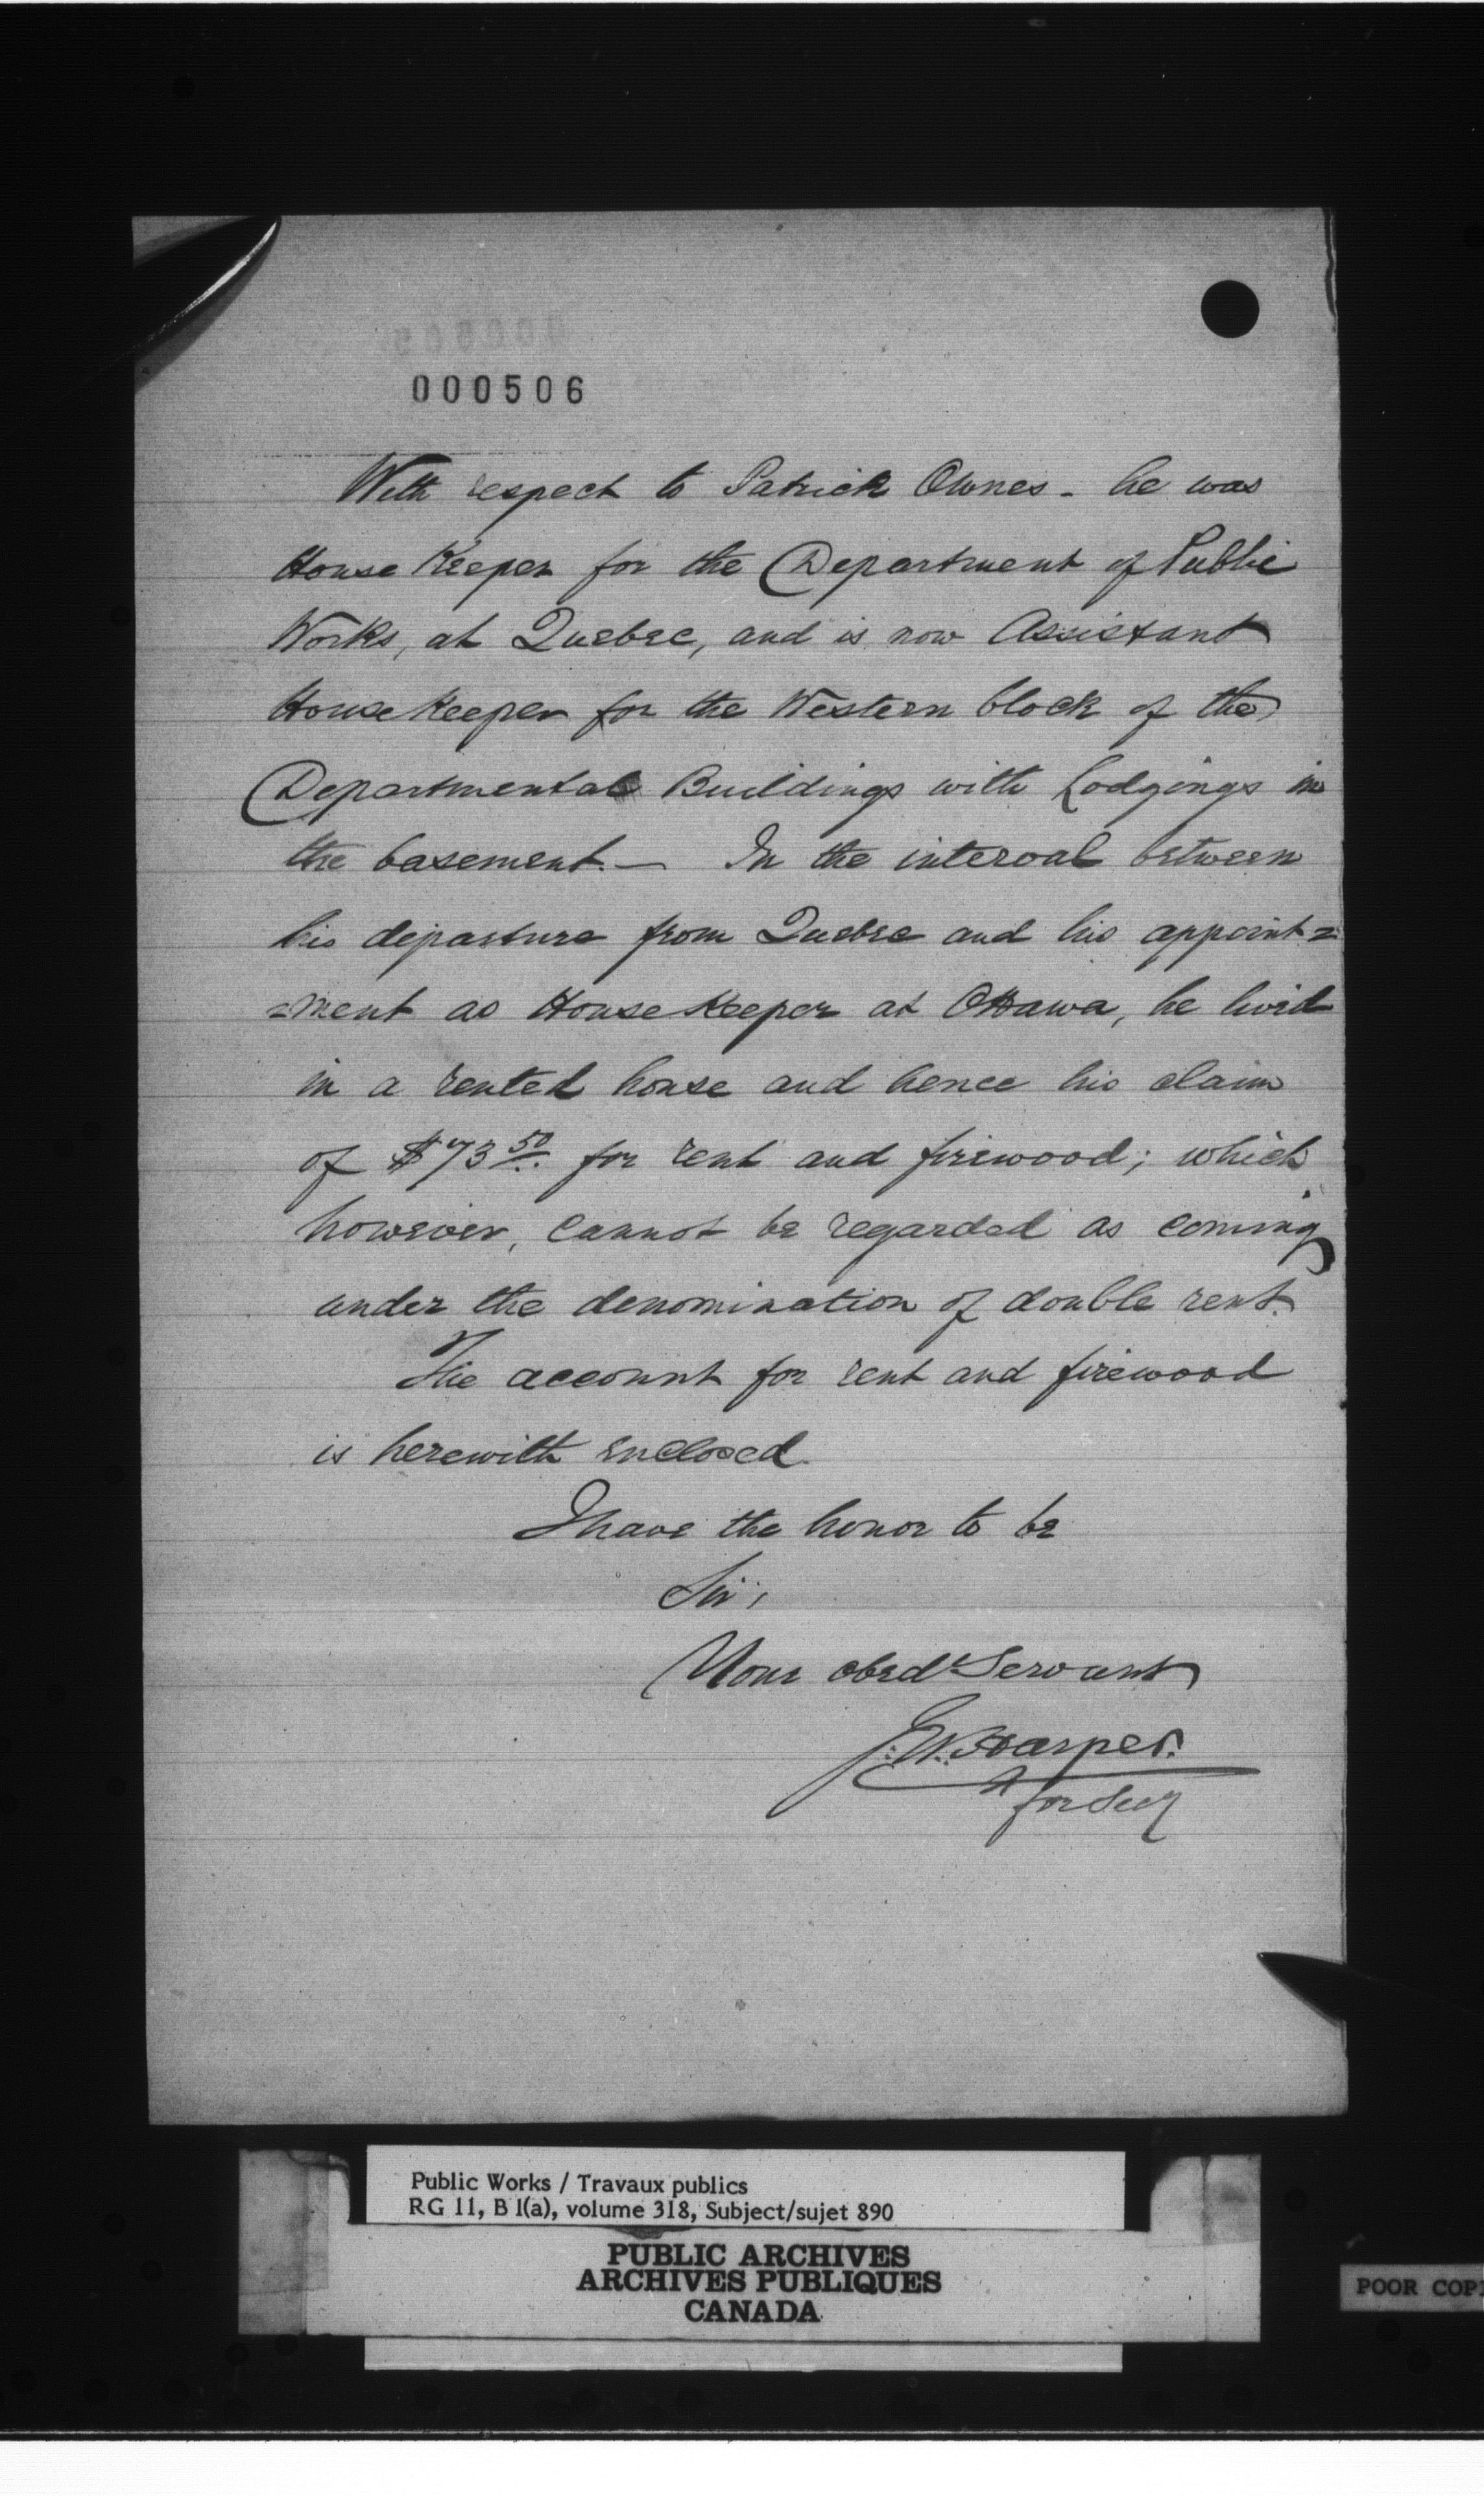 000506
With respect to Patrick Ownes - he was
House Keeper for the Department of Public
Works, at Quebec, and is now Assistant
House Keeper for the Western block of the
Departmental Buildings with Lodgings in
the basement. — In the interval between
his departure from Quebec and his appoint=
=ment as House Keeper at Ottawa, he livid
in a rented house and hence his claim
of $73 50/.. for rent and firewood; which
however, cannot be regarded as coming
under the denomination of double rent.
The account for rent and firewood
is herewith enclosed.
I have the honor to be
Sir,
Your obed Servant
J. W. Harper.
for Secy
Public Works / Travaux publics
RG 11, B 1(a), volume 318, Subject/sujet 890
PUBLIC ARCHIVES
ARCHIVES PUBLIQUES
CANADA
POOR COP